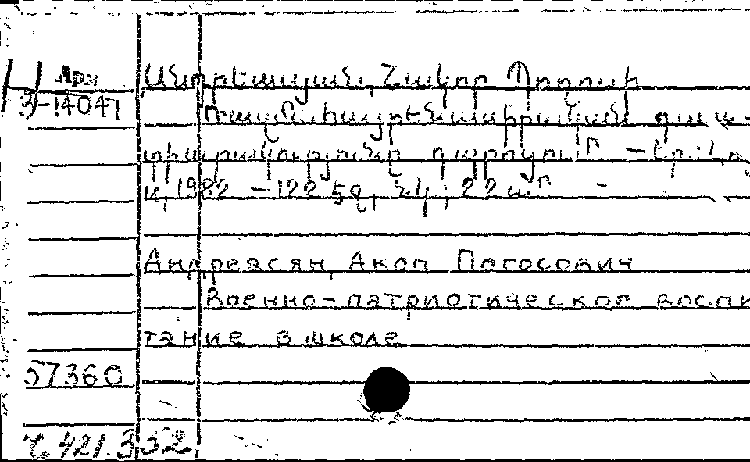 Арм
3-14041
Անդրեասյան, Հակոբ Պողոսի
Ռազմահայրենասիրական դաս-
տիարակությունը դպրոցում
1982 - 122 էջ, նկ; 22 սմ
Андреасян, Акоп Погосович
Военно-патриотическое воспи
тание в школе
57360
Ч 421.352